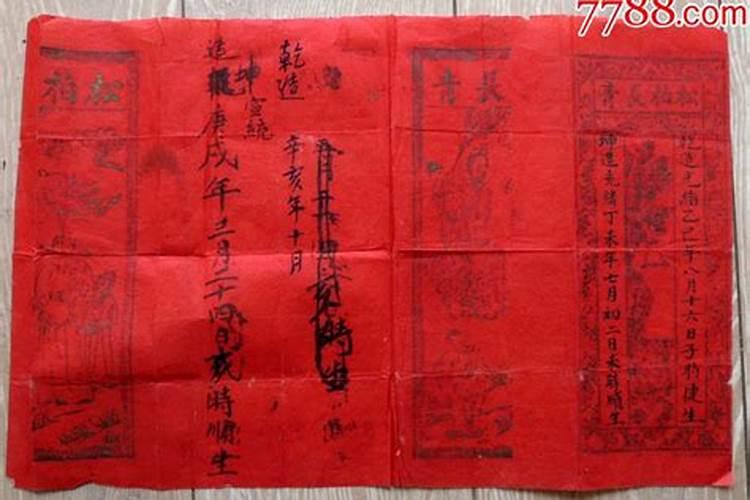 7788.com
松柏長青
乾造光緒乙巳年八月十六日子時健生
坤造光緒丁未年七月初二日未時順生
長青
乾造
辛亥年十月
時生
宣統
坤
造庚戌年三月二十四日亥時順生
松柏